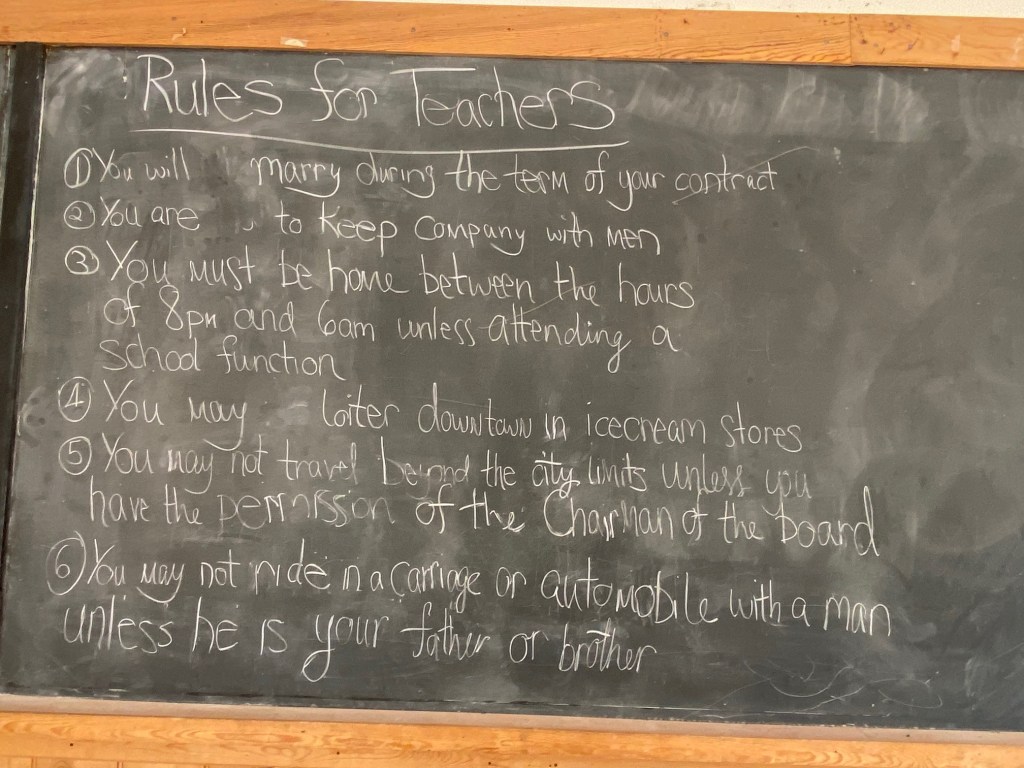 Rules for Teachers
① You will marry during the term of your contract
② You are to keep company with men
③ You must be home between the hours
of 8pm and 6am unless attending a
school function
④ You may loiter downtown in icecream stores
⑤ You may not travel beyond the city limits unless you
have the permission of the Chairman of the board
⑥ You may not ride in a carriage or automobile with a man
unless he is your father or brother